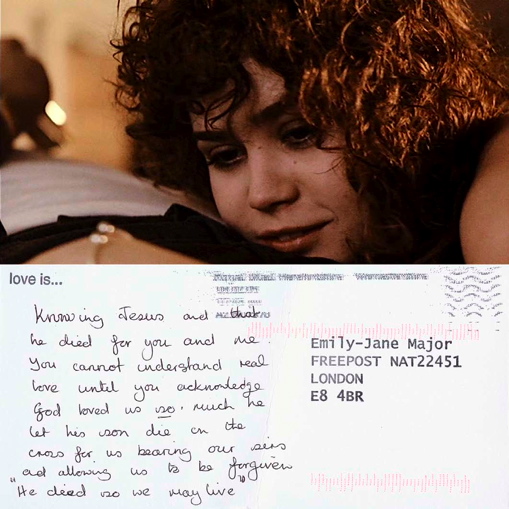 love is...
Knowing Jesus and that
he died for you and me.
You cannot understand real
love until you acknowledge
God loved us so, much he
let his son die on the
cross for us bearing our sins
and allowing us to be forgiven
"He died so we may live"
Emily-Jane Major
FREEPOST NAT22451
LONDON
E8 4BR